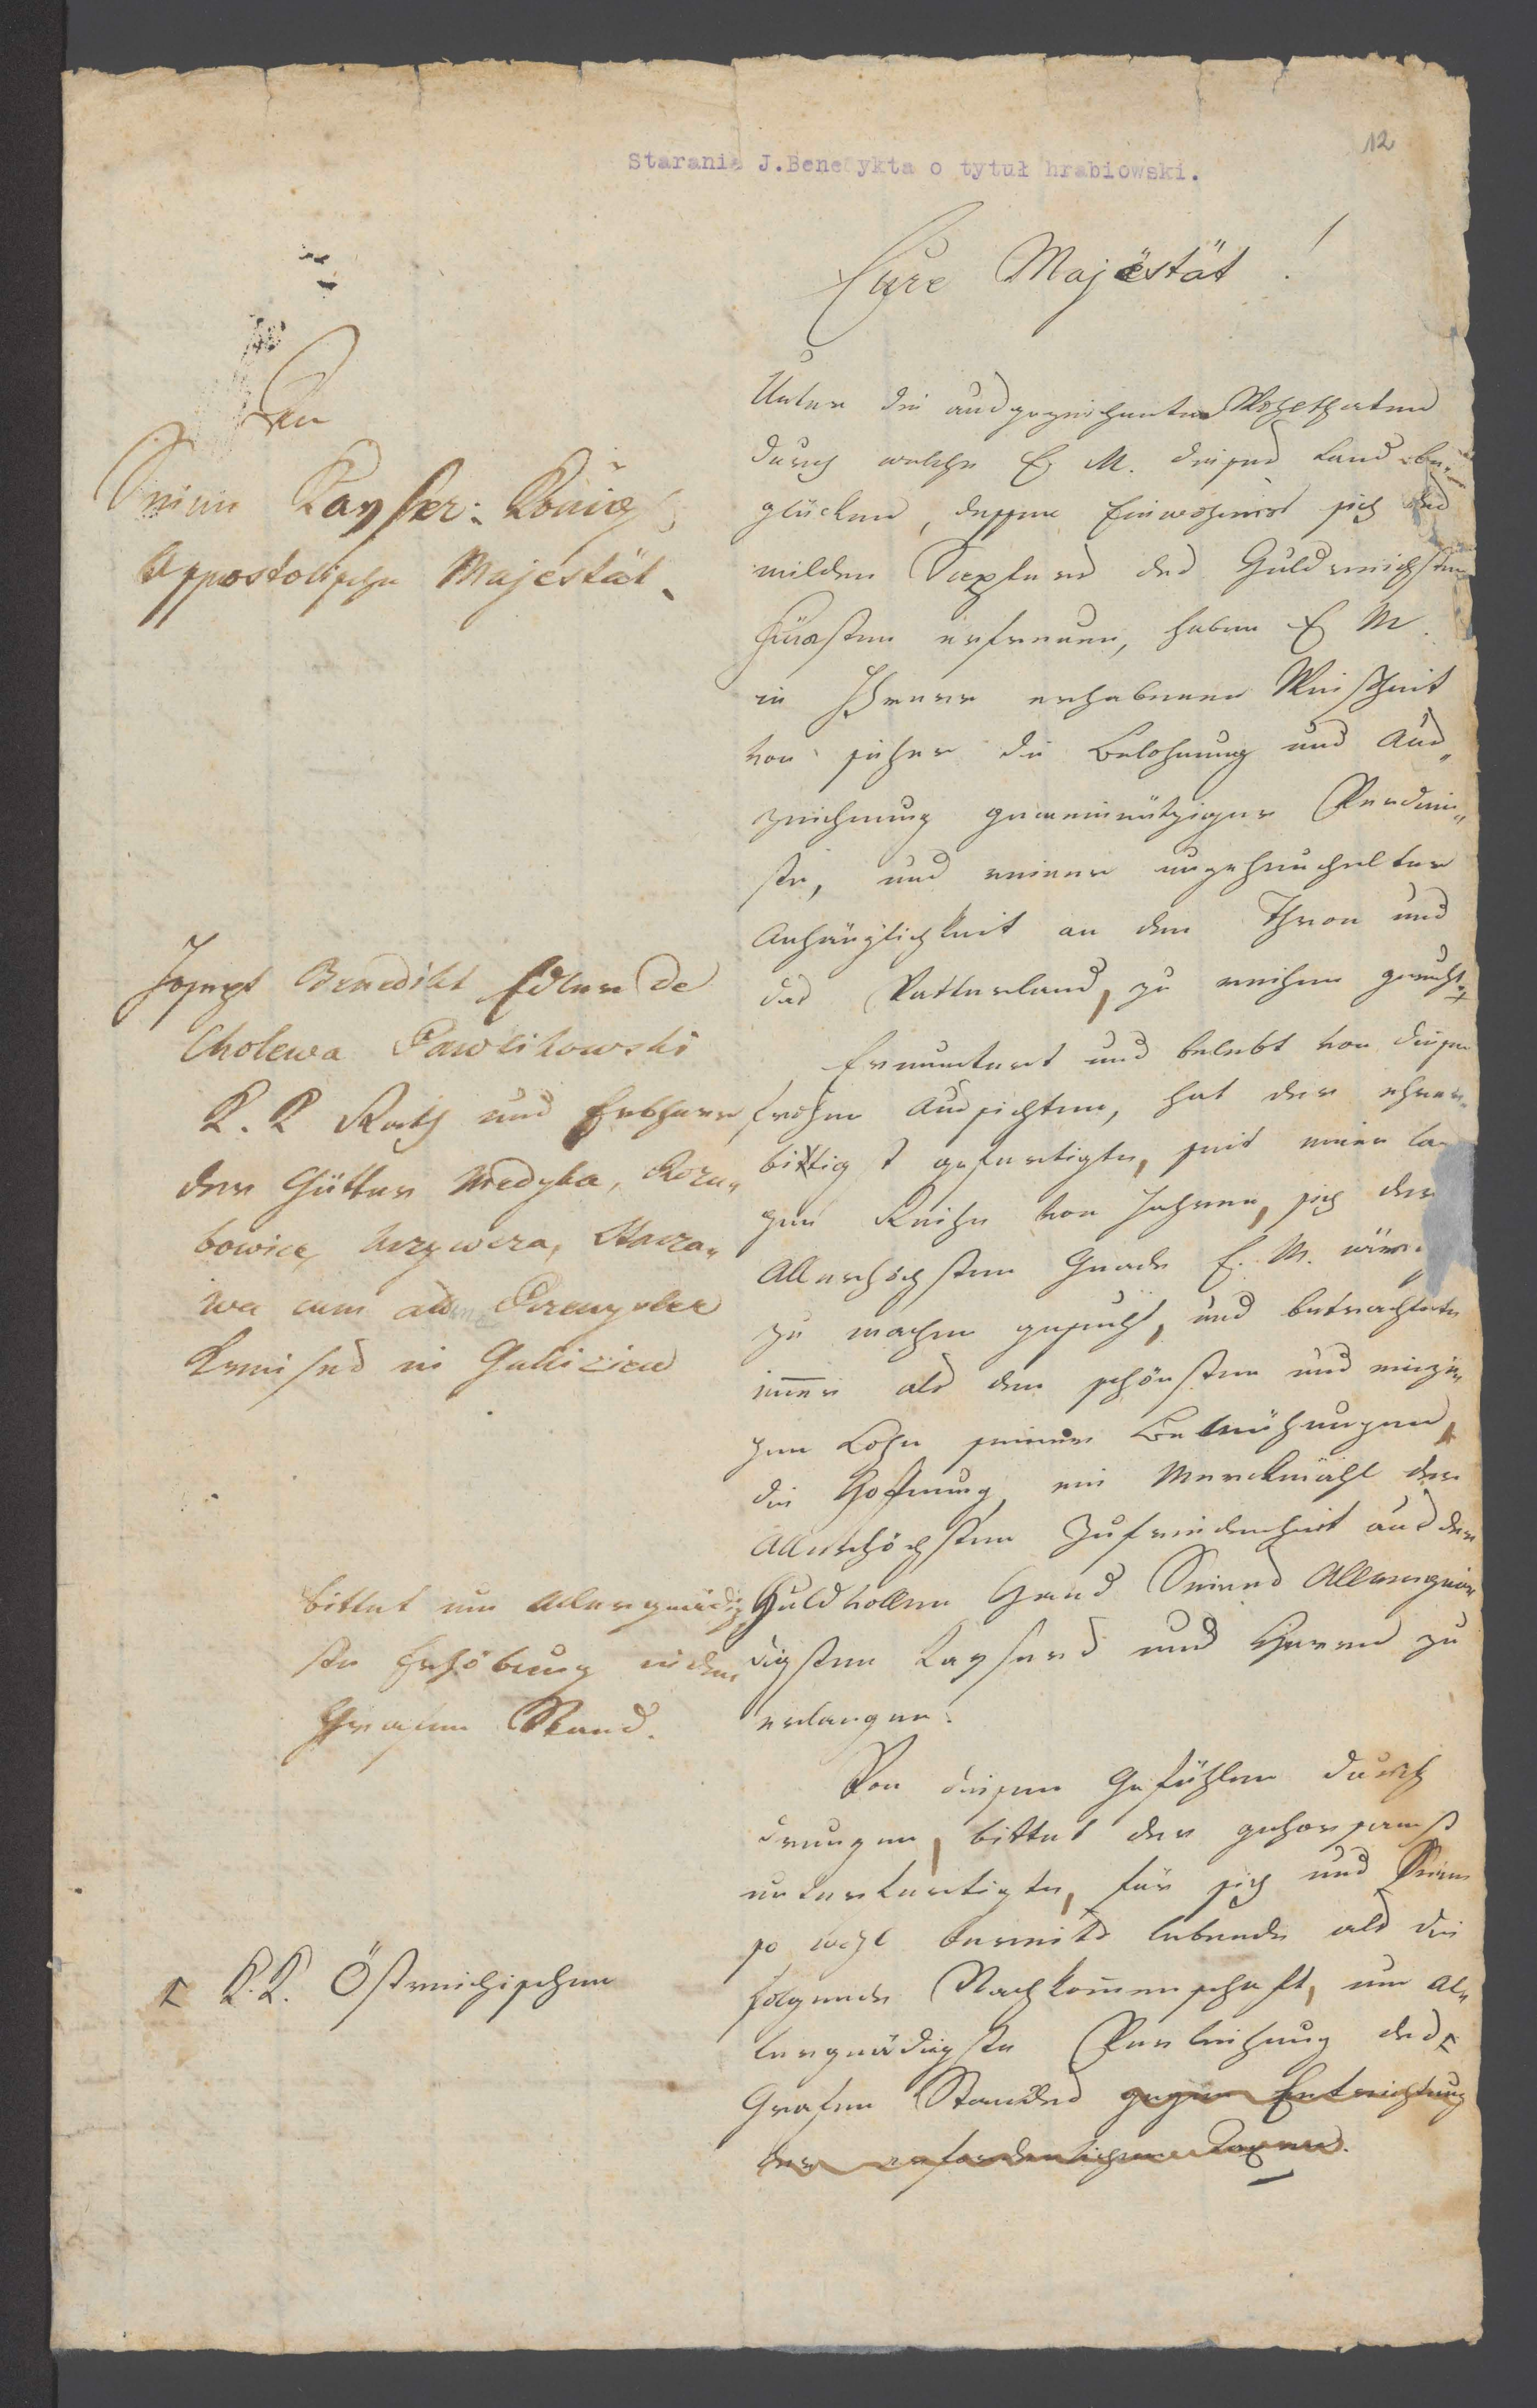 12
Starania J.Benedykta o tytuł hrabiowski.
Eure Majestät !
An
Seine Kayser: König
Appostolische Majestät.
Joseph Benedikt Edler de
Cholewa Pawlikowski
K. K Rath und Erbherr
der Gütter Medyka,
bowice,
wa cum Przemysler
Kreises in Galizien
bittet um Allergnädig
ste Erhöbung in den
Grafen Stand.
K.K. Östreichischen
Unter die ausgezeichneten Wohlthaten
durch welche E M. dieses Land be-
glücken, dessen Einwohner sich des
milden Szepters des Huldreichsten
Fürsten erfreuen, haben E M.
in Ihrer erhabenen Weisheit
von jeher die Belohnung und Aus„
zeichnung gemeinnütziger Verdien„
ste, und reiner ungeheuchelter
Anhänglichkeit an den Thron und
das Vatterland, zu reihen geruht
Ermuntert und belebt von diesen
frohen Aussichten, hat der ehrer„
bittigst gefertigte, seit einer lan
gen Reihe von Jahren, sich der
Allerhöchsten Gnade E. M. wür
zu machen gesucht, und betrachtete
immer als den schönsten und einzi„
gen Lohn seiner Bemühungen,
die Hoffnung, ein Merckmahl der
Allerhöchsten Zufriedenheit aus der
Huldvollen Hand Seines Allergnä
digsten Kaysers und Herrn zu
erlangen.
Von diesen Gefühlen durch
drungen, bittet der gehorsamst
unterfertigte, für sich und Seine
so wohl bereits lebende als die
folgende Nachkommenschaft, um Al„
lergnädigste Verleihung des
Grafen Standes gegen Entrichtung
der erforderlichen Taxen.